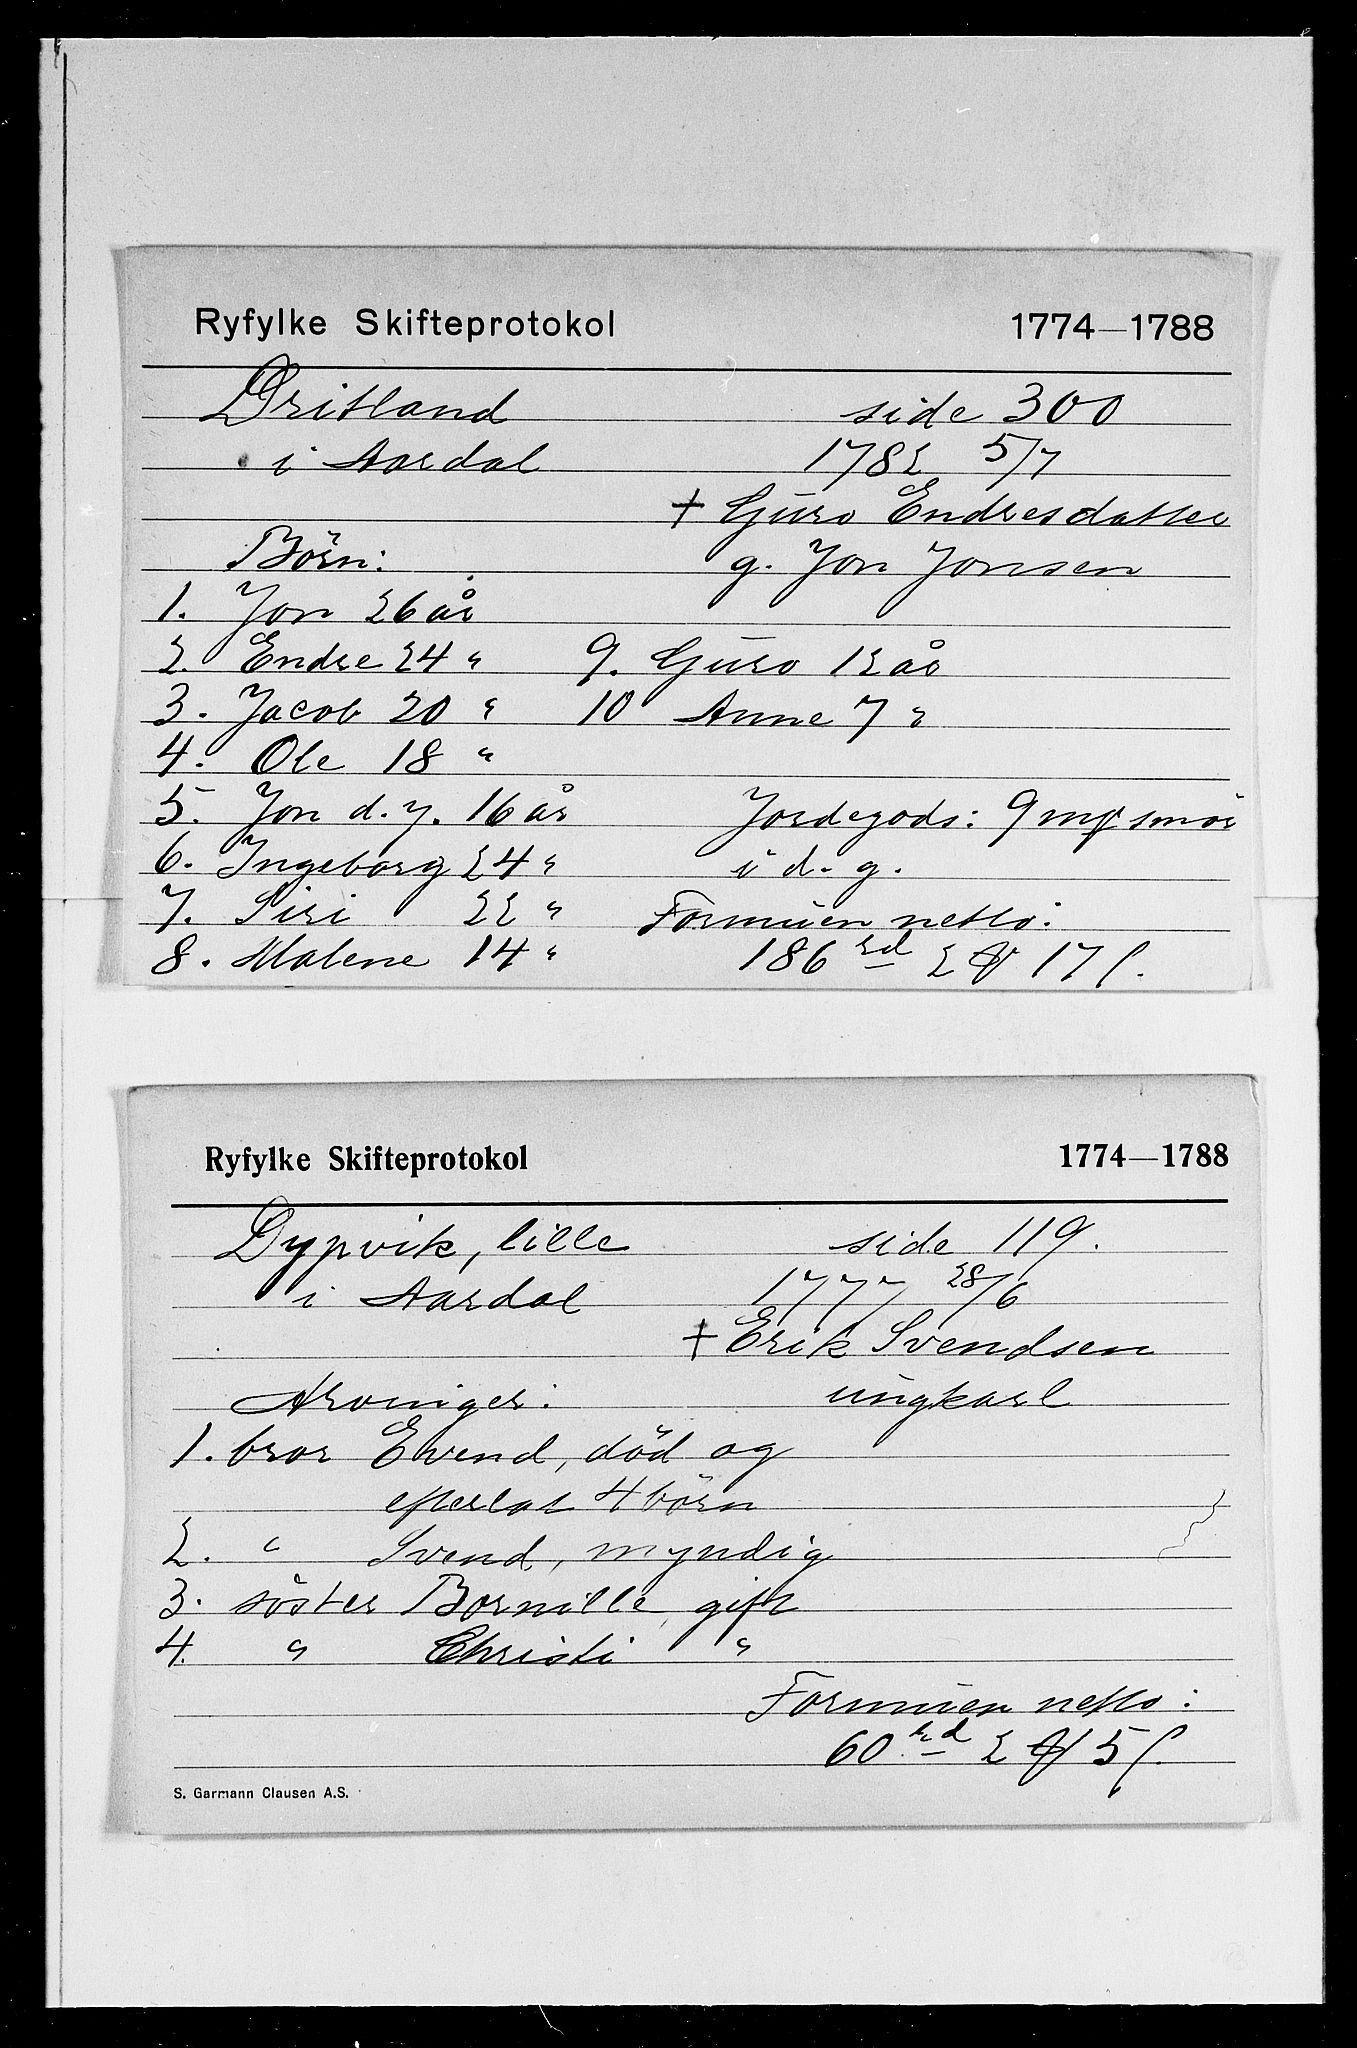 Ryfylke Skifteprotokol 1774—1788
Dritland side 300
i Aardal 1782 5/7
† Guro Endresdatter
Børn: g. Jon Jonsen
1. Jon 26 år
2. Endre 24 " 9. Guro 12 år
3. Jacob 20 " 10 Anne 7 "
4. Ole 18 "
5. Jon d. y. 16 år Jordegods: 9 mß smör
6. Ingeborg 24 " i d. g.
7. Siri 22 " Formuen netto:
8. Malene 14 " 186 rd 2 ₰ 17 ß.
Ryfylke Skifteprotokol 1774—1788
Dypvik, lille side 119.
i Aardal 1777 28/6
† Erik Svendsen
Arvinger: ungkarl
1. bror Evend, död og
efterlot 4 börn
2. " Svend, myndig
3. söster Bornille, gift
4. " Christi "
Formuen netto:
60 rd 2 ₰ 5 ß.
S. Garmann Clausen A.S.